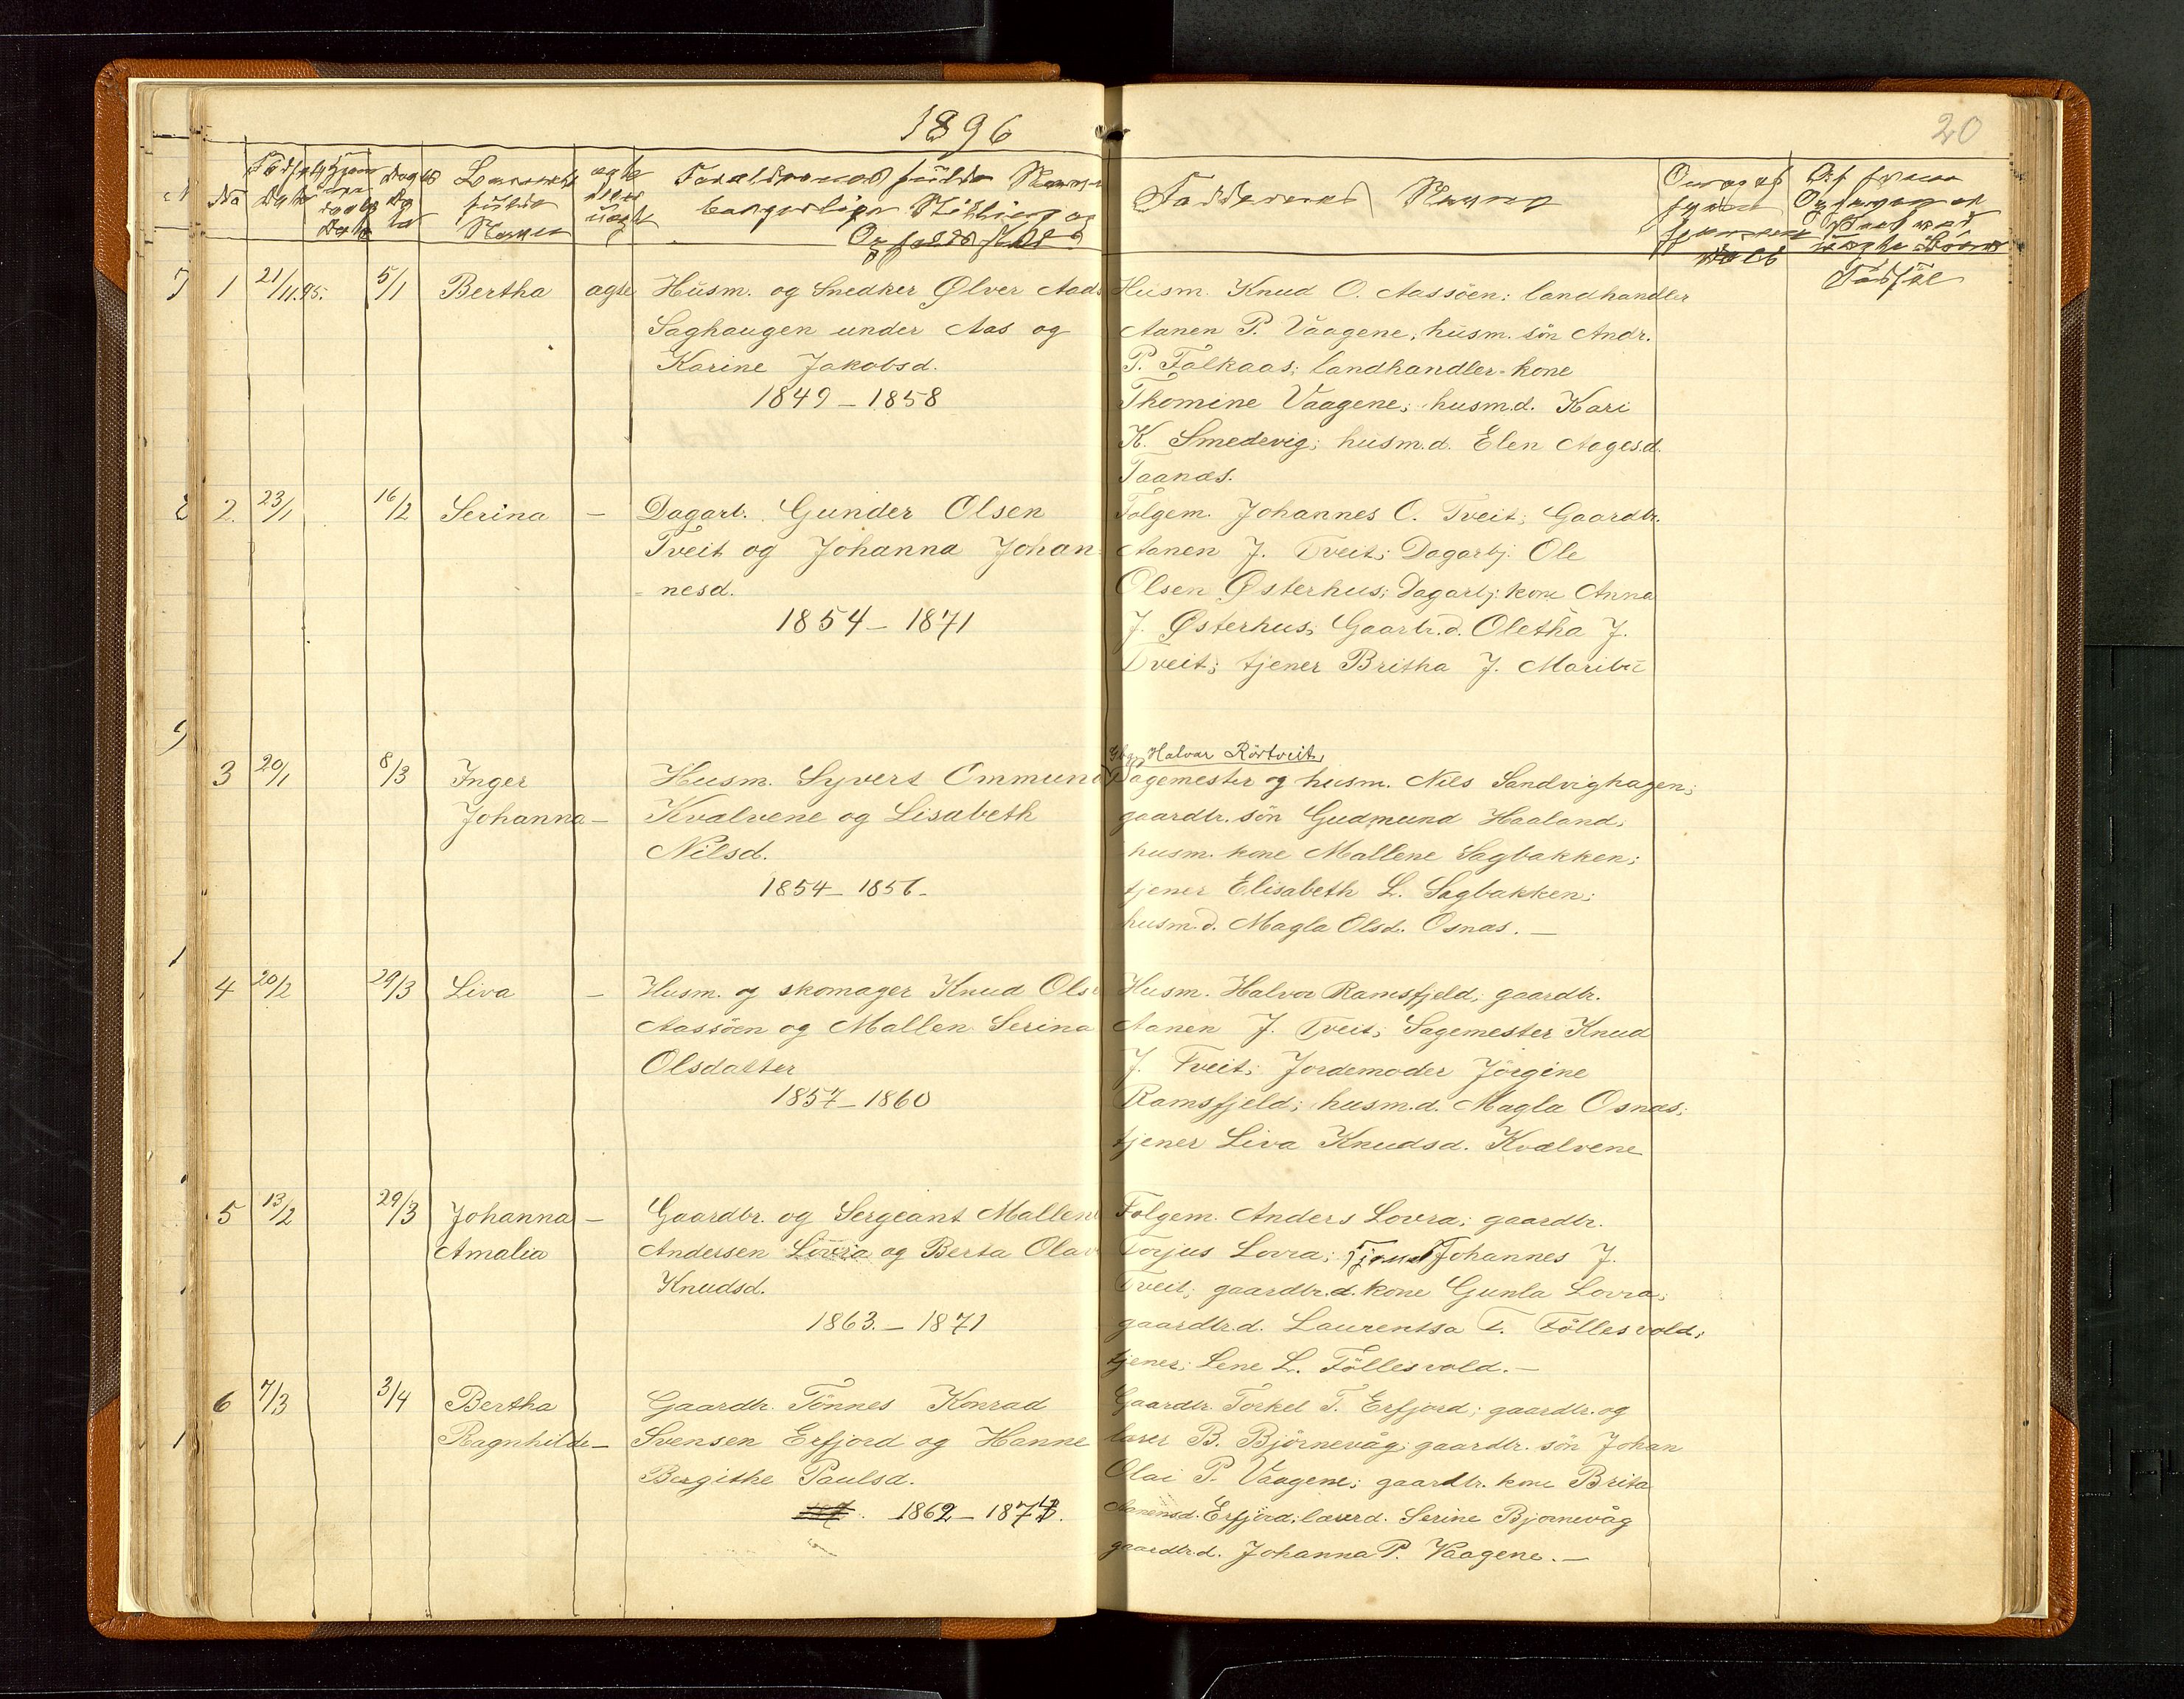 1896
20
No
Barnets
fulde
Navn
ægte
eller
uægte
Forældrenes fulde Navn
borgerlige Stilling og
Opholdssted
Faddernes Navne
1 21/11.95. 5/1 Bertha ægte Husm. og Snedker Ølver Aads
Saghaugen under Aas og
Karine Jakobsd.
1849 – 1858
Husm. Knud O. Aassöen; landhandler
Aanen P. Vaagene; husm. sön Andr.
P. Folkaas; landhandler-kone
Thomine Vaagene; husm.d. Kari
K. Smedevig; husm.d. Elen Aagesd.
Taanæs.
2. 23/1 16/2 Serina – Dagarb. Gunder Olsen
Tveit og Johanna Johan
- nesd.
1854 – 1871
Folgem. Johannes O. Tveit; Gaardbr.
Aanen J. Tveit; Dagarbj. Ole
Olsen Østerhus; Dagarbj. kone Anna
J. Østerhus; Gaarbr.d. Oletha J.
Tveit; tjener Britha J. Maribu
3 20/1 8/3 Inger
Johanna –
Husm. Syvert Ommund
Kvalvene og Lisabeth
Nilsd.
1854 – 1856 –
Gbr. Halvar Rörtveit,
Sagemester og husm. Nils Sandvighagen;
gaardbr. sön Gudmund Haaland;
husm. kone Mallene Sagbakken;
tjener Elisabeth L. Sagbakken;
husm.d. Magla Olsd. Osnæs. –
4 20/2 29/3 Liva – Husm. og skomager Knud Olse
Aassöen og Mallen Serina
Olsdatter
1857 – 1860
Husm. Halvor Ramsfjeld; gaardbr.
Aanen J. Tveit; Sagemester Knud
J. Tveit; Jordemoder Jörgine
Ramsfjeld; husm.d. Magla Osnæs;
tjener Liva Knudsd. Kvalvene
5 13/2 29/3 Johanna –
Amalia
Gaardbr. og Sergeant Mallen
Andersen Lovra og Berta Olav
Knudsd.
1863. – 1871
Folgem. Anders Lovra; gaardbr.
Torjus Lovra; Tjener Johannes J.
Tveit; gaardbr.d. kone Gunla Lovra;
gaardbr.d. Laurentsa T. Föllesvold;
tjener; Lene L. Föllesvold. –
6 7/3 3/4 Bertha
Ragnhilde –
Gaardbr. Tönnes Konrad
Svensen Erfjord og Hanne
Bergithe Paulsd.
1862 – 1874.
Gaardbr. Torkel T. Erfjord; gaardbr. og
lærer B. Björnevåg; gaardbr. sön Johan
Olai P. Vaagene; gaardbr. kone Brita
Aanensd. Erfjord; lærerd. Serine Bjornevåg
gaardbr.d. Johanna P. Vaagene. –